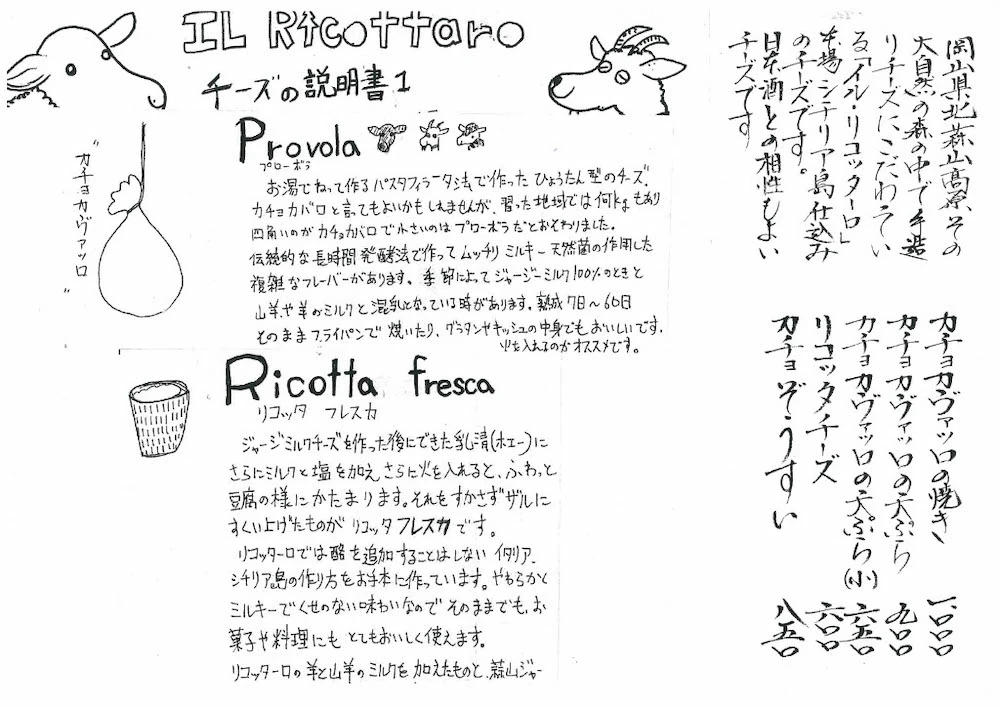 IL Ricottaro
チーズの説明書1
"カチョカヴァッロ"
Provola
プローボラ
お湯でねって作るパスタフィラータ法で作ったひょうたん型のチーズ。
カチョカバロと言ってもよいかもしれませんが、習った地域では何kgもあり
四角いのがカチョカバロで小さいのはプローボラだとおそわりました。
伝統的な長時間発酵法で作ってムッチリミルキー天然菌の作用した
複雑なフレーバーがあります。季節によってジャージーミルク100%のときと
山羊や羊のミルクと混乳となっている時があります。熟成7日〜60日
そのままフライパンで焼いたり、グラタンやキッシュの中身でもおいしいです。
火を入れるのがオススメです。
Ricotta fresca
リコッタ フレスカ
ジャージミルクチーズを作った後にできた乳清(ホエー)に
さらにミルクと塩を加え、さらに火を入れると、ふわっと
豆腐の様にかたまります。それをすかさずザルに
すくい上げたものがリコッタフレスカです。
リコッターロでは酢を追加することはしないイタリア、
シチリア島の作り方をお手本に作っています。やわらかと
ミルキーでくせのない味わいなので そのままでも、お
菓子や料理にも とてもおいしく使えます。
リコッターロの羊と山羊のミルクを加えたものと、蒜山ジャー
岡山県北蒜山高原その
大自然の森の中で手造
りチーズにこだわってい
る「イル・リコッターロ」
本場シチリア島仕込み
のチーズです。
日本酒との相性もよい
チーズです
カチョカヴァッロの焼き 一〇〇〇
カチョカヴァッロの天ぷら 九〇〇
カチョカヴァッロの天ぷら(小) 六五〇
リコッタチーズ 六〇〇
カチョぞうすい 八五〇